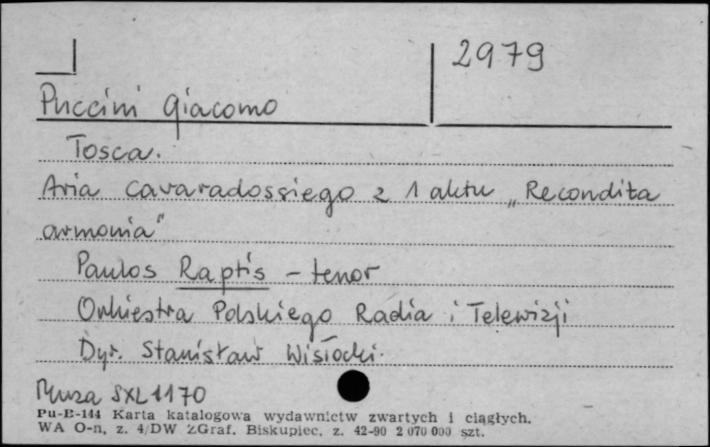 2979
Puccini Giacomo
Tosca.
Aria Cavaradossiego z 1 aktu „Recondita
armonia"
Paulos Raptis - tenor
Orkiestra Polskiego Radia i Telewizji
Dyr. Stanisław Wisłocki.
Muza SXL 1170
Pu-E-144 Karta katalogowa wydawnictw zwartych i ciągłych.
WA O-n, z. 4/DW ZGraf. Biskupiec, z. 42-90 2 070 000 szt.